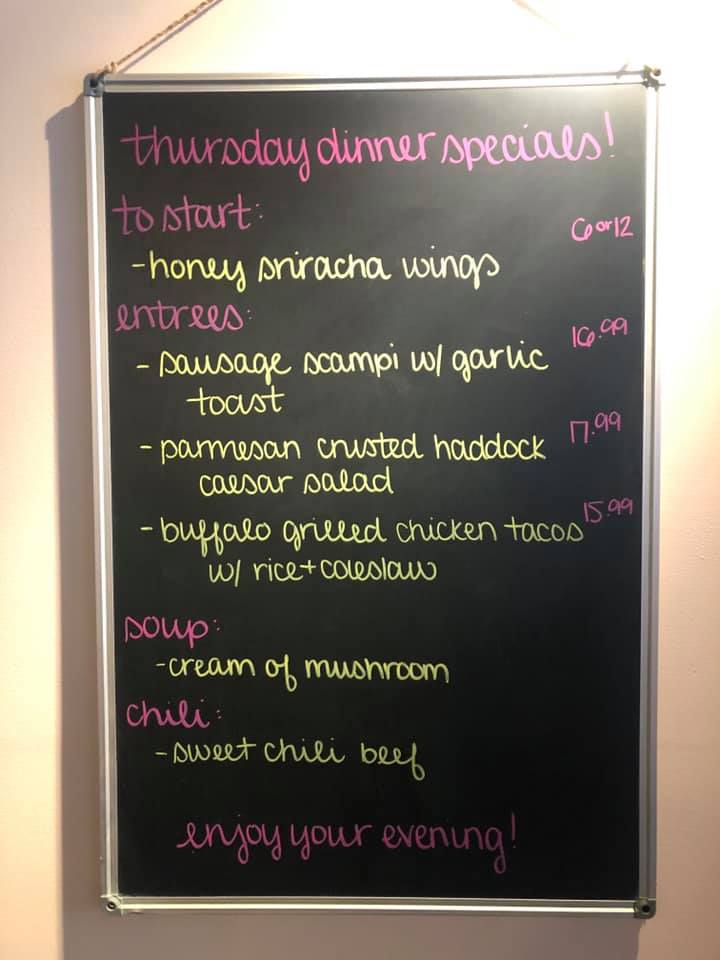 thursday dinner specials!
to start:
6 or 12
-honey sriracha wings
entrees:
16.99
- sausage scampi w/ garlic
toast
17.99
- parmesan crusted haddock
caesar salad
15.99
- buffalo grilled chicken tacos
w/ rice + coleslaw
soup:
-cream of mushroom
chili:
-sweet chili beef
enjoy your evening!